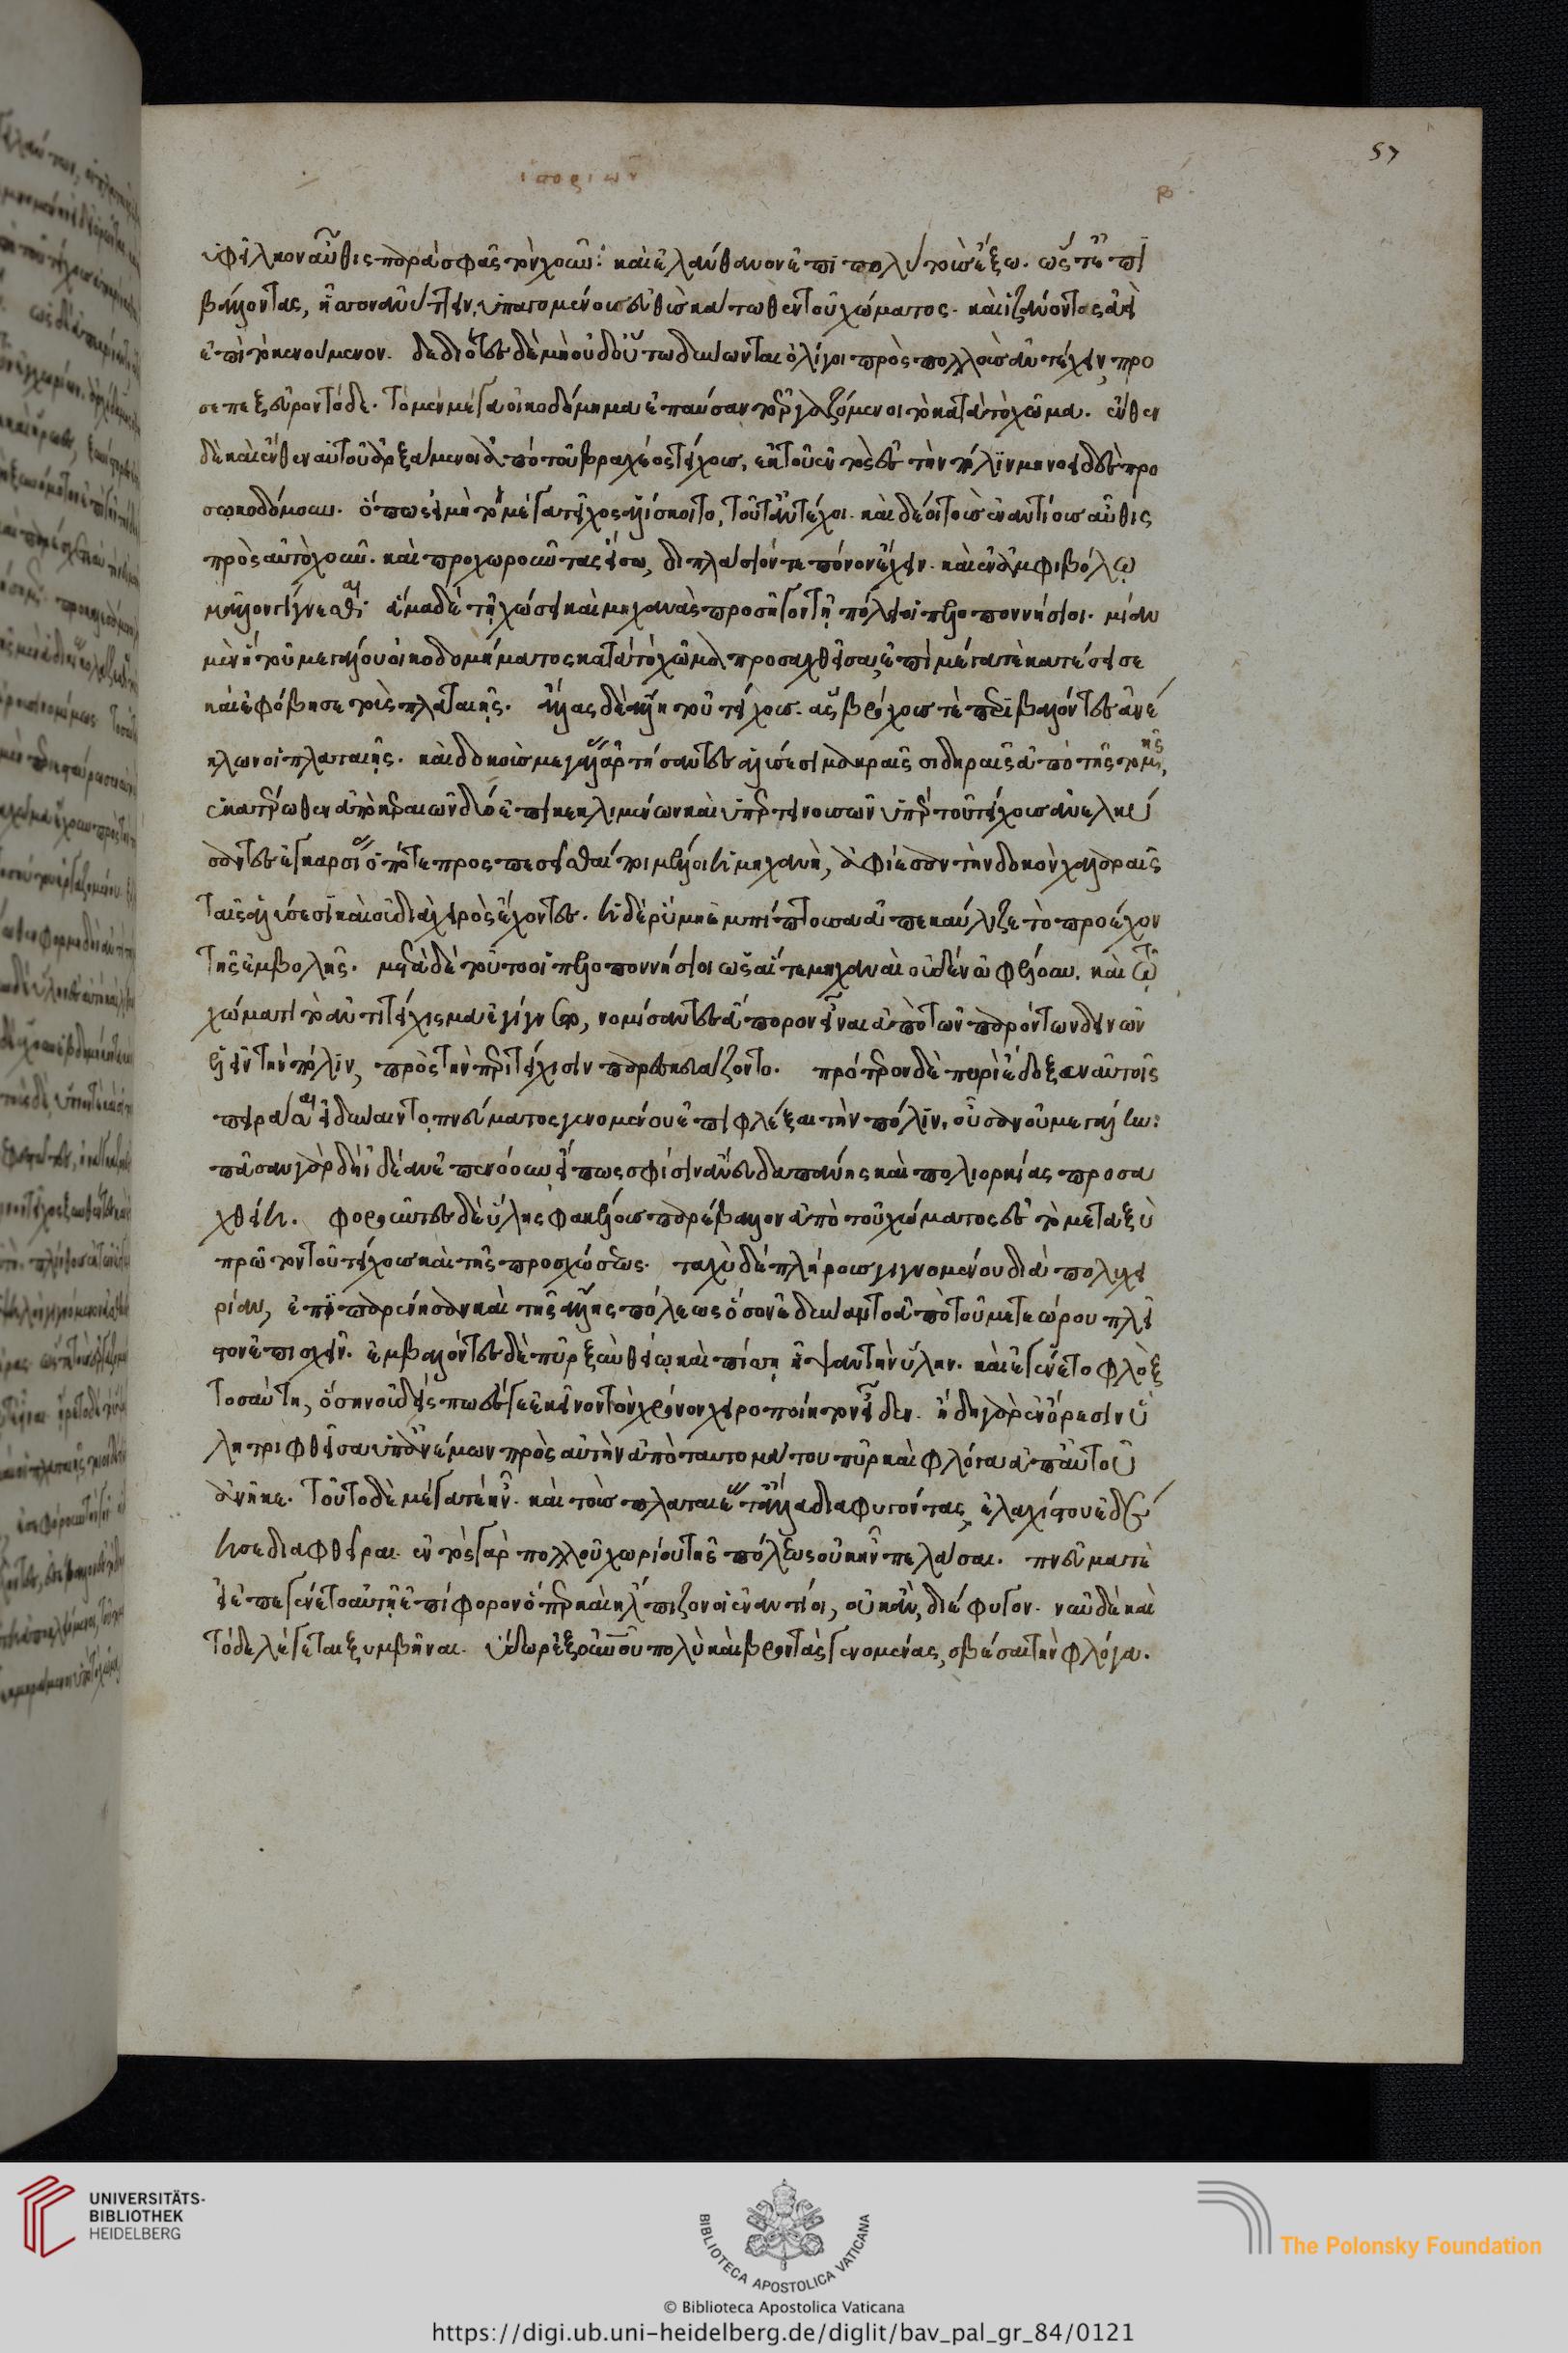 ὑφεῖλκον αὖθις παρὰ σφᾶς τὸν χοῦν· καὶ ἐλάνθανον ἐπὶ πολὺ τοὺς ἔξω. ὥστε ἐπι
βάλλοντας, ἧσσον ἀνύτειν, ὑπαγομένου αὐτοῖς κάτωθεν τοῦ χώματος. καὶ ἱζάνοντος ἀεὶ
ἐπὶ τὸ κενούμενον. δεδιότες δὲ μὴ οὐδ' οὕτω δύνωνται ὀλίγοι πρὸς πολλοὺς ἀντέχειν, προ
σεπεξεῦρον τόδε. τὸ μὲν μέγα οἰκοδόμημα ἐπαύσαντο ἐργαζόμενοι τὸ κατὰ τὸ χῶμα. ἔνθεν
δὲ καὶ ἔνθεν αὐτοῦ ἀρξάμενοι ἀπὸ τοῦ βραχέος τείχους, ἐκ τοῦ ἐντὸς ἐς τὴν πόλιν μηνοειδὲς προ
σῳκοδόμουν. ὅπως εἰ μὴ τὸ μέγα τεῖχος ἁλίσκοιτο, τοῦτ' ἀντέχοι. καὶ δέοι τοὺς ἐναντίους αὖθις
πρὸς αὐτὸ χοῦν. καὶ προχωροῦντας εἴσω, διπλάσιόν τε πόνον ἔχειν. καὶ ἐν ἀμφιβόλῳ
μᾶλλον γίγνεσθαι ἅμα δὲ τῇ χώσει καὶ μηχανὰς προσῆγον τῇ πόλει οἱ πελοποννήσιοι. μίαν
μὲν ἣ τοῦ μεγάλου οἰκοδομήματος κατὰ τὸ χῶμα προσαχθεῖσα, ἐπὶ μέγα τε κατέσεισε
καὶ ἐφόβησε τοὺς πλαταιῆς. ἄλλας δὲ ἄλλῃ τοῦ τείχους. ἃς βρόχους τε περιβάλλοντες ἀνέ
κλων οἱ πλαταιῆς. καὶ δοκοὺς μεγάλας ἀρτήσαντες ἁλύσεσι μακραῖς σιδηραῖς ἀπὸ τῆς τομῆς,
ἑκατέρωθεν ἀπὸ κεραιῶν δύο ἐπικεκλιμένων καὶ ὑπερτεινουσῶν ὑπὲρ τοῦ τείχους ἀνελκύ
σαντες ἐγκαρσίας ὁπότε προσπεσεῖσθαί πῃ μέλλοι ἡ μηχανὴ, ἀφίεσαν τὴν δοκὸν χαλαραῖς
ταῖς ἁλύσεσι καὶ οὐ διὰ χειρὸς ἔχοντες. ἡ δὲ ῥύμῃ ἐμπίπτουσα ἀπεκαύλιζε τὸ προέχον
τῆς ἐμβολῆς. μετὰ δὲ τοῦτο οἱ πελοποννήσιοι ὡς αἵ τε μηχαναὶ οὐδὲν ὠφέλουν. καὶ τῷ
χώματι τὸ ἀντιτείχισμα ἐγίγνετο, νομίσαντες ἄπορον εἶναι ἀπὸ τῶν παρόντων δεινῶν
ἑλεῖν τὴν πόλιν, πρὸς τὴν περιτείχισιν παρεσκευάζοντο. πρότερον δὲ πυρὶ ἔδοξεν αὐτοῖς
πειρᾶσαι εἰ δύναιντο πνεύματος γενομένου ἐπιφλέξαι τὴν πόλιν, οὖσαν οὐ μεγάλην:
πᾶσαν γὰρ δὴ ἰδέαν ἐπενόουν εἴ πως σφίσιν ἄνευ δαπάνης καὶ πολιορκίας προσα
χθείη. φοροῦντες δὲ ὕλης φακέλους παρέβαλον ἀπὸ τοῦ χώματος ἐς τὸ μεταξὺ
πρῶτον τοῦ τείχους καὶ τῆς προσχώσεως. ταχὺ δὲ πλήρους γιγνομένου διὰ πολυχει
ρίαν, ἐπιπαρένησαν καὶ τῆς ἄλλης πόλεως ὅσον ἐδύναντο ἀπὸ τοῦ μετεώρου πλεῖ
στον ἐπισχεῖν. ἐμβαλόντες δὲ πῦρ ξὺν θείῳ καὶ πίσσῃ ἧψαν τὴν ὕλην. καὶ ἐγένετο φλὸξ
τοσαύτη, ὅσην οὐδείς πω ἔς γε ἐκεῖνον τὸν χρόνον χειροποίητον εἶδεν. ἤδη γὰρ ἐν ὄρεσιν ὕ
λη τριφθεῖσα ὑπ' ἀνέμων πρὸς αὑτὴν ἀπὸ ταυτομάτου πῦρ καὶ φλόγα ἀπ' αὐτοῦ
ἀνῆκε. τοῦτο δὲ μέγα τε ἦν. καὶ τοὺς πλαταιέας τἆλλα διαφυγόντας, ἐλαχίστου ἐδέ
ησε διαφθεῖραι. ἐντὸς γὰρ πολλοῦ χωρίου τῆς πόλεως οὐκ ἦν πελάσαι. πνεῦμά τε
εἰ ἐπεγένετο αὐτῇ ἐπίφορον ὅπερ καὶ ἤλπιζον οἱ ἐναντίοι, οὐκ ἂν διέφυγον. νῦν δὲ καὶ
τόδε λέγεται ξυμβῆναι. ὕδωρ ἐξ οὐρανοῦ πολὺ καὶ βροντὰς γενομένας, σβέσαι τὴν φλόγα.
57
β
UNIVERSITÄTS-
BIBLIOTHEK
HEIDELBERG
BIBLIOTECA APOSTOLICA VATICANA
© Biblioteca Apostolica Vaticana
The Polonsky Foundation
https://digi.ub.uni-heidelberg.de/diglit/bav_pal_gr_84/0121